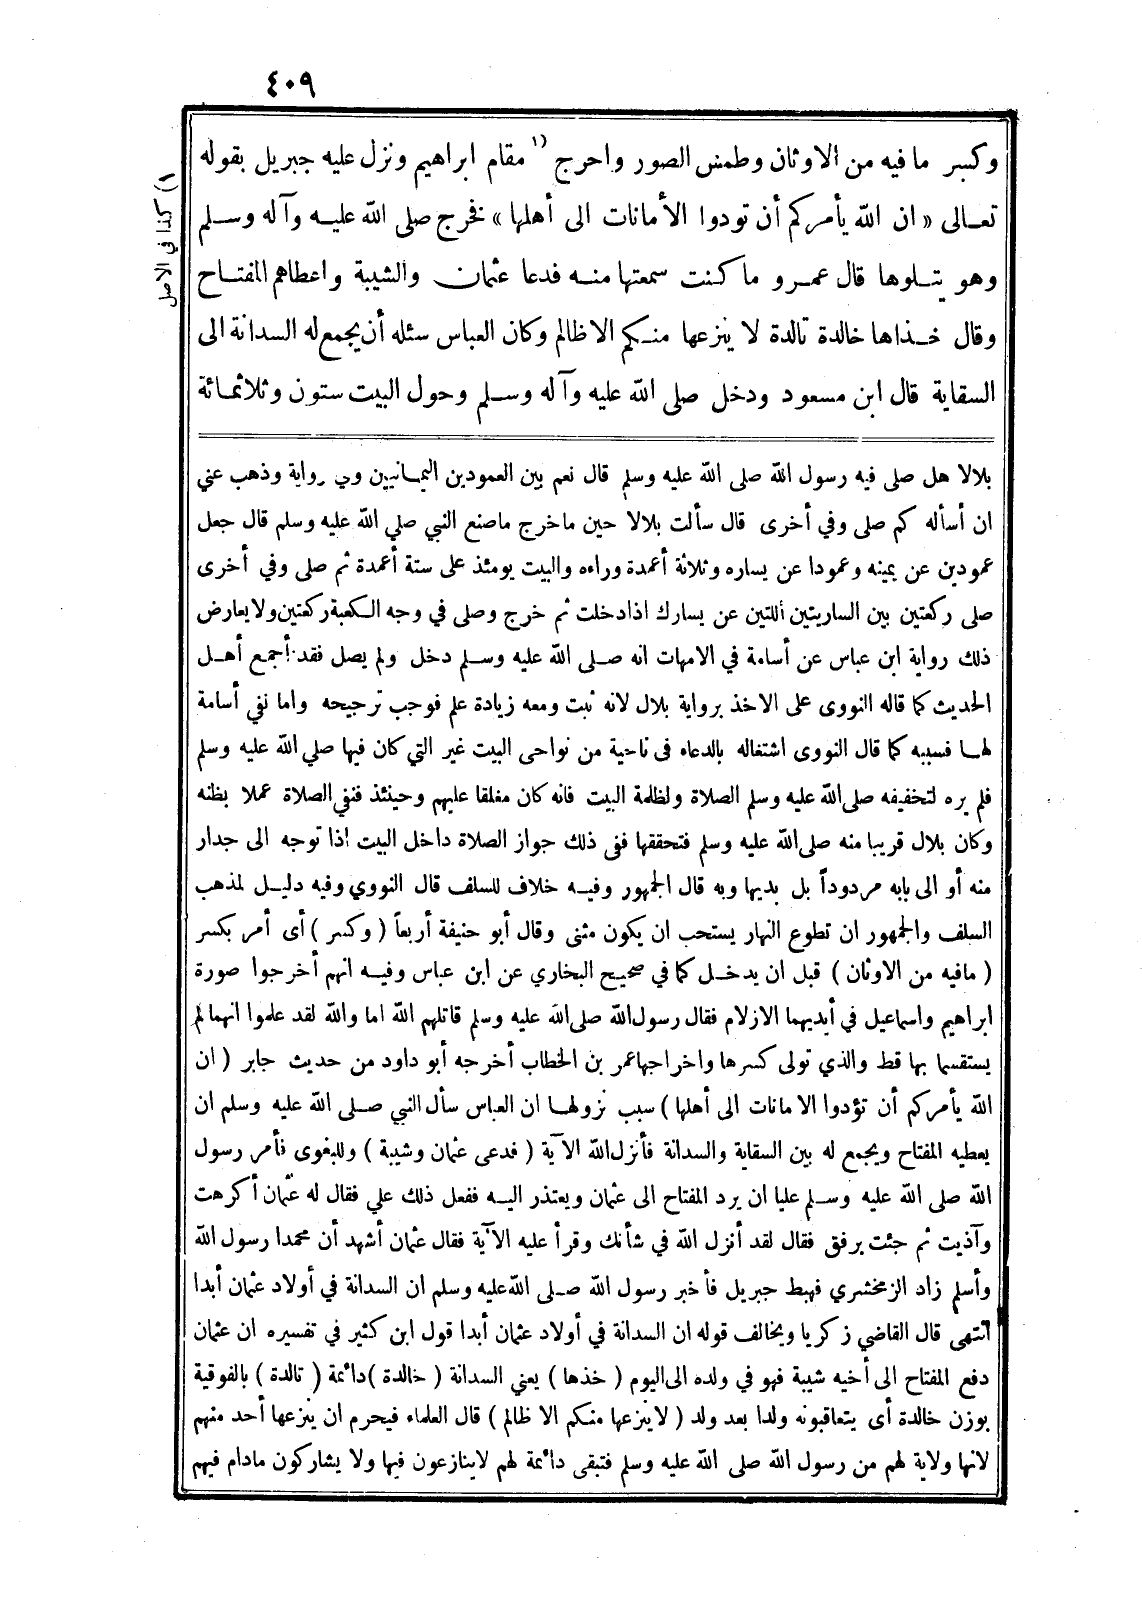 ٤٠٩
وكسر مافيه من الاوثان وطمس الصور واحرج (١ مقام ابراهيم ونزل عليه جبريل بقوله
تعالى « ان الله يأمركم أن تودوا الأمانات الى أهلها » فخرج صلى الله عليه وآله وسلم
وهو يتلوها قال عمرو ماكنت سمعتها منه فدعا عثمان والشيبة واعطاهم المفتاح
وقال خذاها خالدة تالدة لا ينزعها منكم الاظالم وكان العباس سئله أن يجمع له السدانة الى
السقاية قال ابن مسعود ودخل صلى الله عليه وآله وسلم وحول البيت ستون وثلاثمائة
١) كذا في الاصل
بلالا هل صلى فيه رسول الله صلى الله عليه وسلم قال نعم بين العمودين اليمانيين وفي رواية وذهب عني
ان أسأله كم صلى وفي أخرى قال سألت بلالا حين ماخرج ماصنع النبي صلي الله عليه وسلم قال جعل
عمودين عن يمينه وعمودا عن يساره وثلاثة أعمدة وراءه والبيت يومئذ على ستة أعمدة ثم صلى وفي أخرى
صلى ركعتين بين الساريتين اللتين عن يسارك اذادخلت ثم خرج وصلى في وجه الكعبة ركعتين ولايعارض
ذلك رواية ابن عباس عن أسامة في الامهات انه صلى الله عليه وسلم دخل ولم يصل فقد أجمع أهل
الحديث كما قاله النووى على الاخذ برواية بلال لانه ثبت ومعه زيادة علم فوجب ترجيحه واما نفي أسامة
لها فسببه كما قال النووى اشتغاله بالدعاء فى ناحية من نواحى البيت غير التي كان فيها صلي الله عليه وسلم
فلم يره لتخفيفه صلى الله عليه وسلم الصلاة ولظلمة البيت فانه كان مغلقا عليهم وحينئذ فنفي الصلاة عملا بظنه
وكان بلال قريبا منه صلى الله عليه وسلم فتحققها ففى ذلك جواز الصلاة داخل البيت اذا توجه الى جدار
منه أو الى بابه مردوداً بل بديها وبه قال الجمهور وفيه خلاف للسلف قال النووي وفيه دليل لمذهب
السلف والجمهور ان تطوع النهار يستحب ان يكون مثنى وقال أبو حنيفة أربعاً ( وكسر ) أى أمر بكسر
( مافيه من الاوثان ) قبل ان يدخل كما في صحيح البخاري عن ابن عباس وفيه انهم أخرجوا صورة
ابراهيم واسماعيل في أيديهما الازلام فقال رسول الله صلى الله عليه وسلم قاتلهم الله اما والله لقد علموا انهما لم
يستقسما بها قط والذي تولى كسرها واخراجها عمر بن الخطاب أخرجه أبو داود من حديث جابر ( ان
الله يأمركم أن تؤدوا الامانات الى أهلها ) سبب نزولها ان العباس سأل النبي صلى الله عليه وسلم ان
يعطيه المفتاح ويجمع له بين السقاية والسدانة فأنزل الله الآية ( فدعى عثمان وشيبة ) وللبغوى فأمر رسول
الله صلى الله عليه وسلم عليا ان يرد المفتاح الى عثمان ويعتذر اليه ففعل ذلك علي فقال له عثمان أكرهت
وآذيت ثم جئت برفق فقال لقد أنزل الله في شأنك وقرأ عليه الآية فقال عثمان أشهد أن محمدا رسول الله
وأسلم زاد الزمخشري فهبط جبريل فأخبر رسول الله صلى الله عليه وسلم ان السدانة في أولاد عثمان أبدا
انتهى قال القاضي زكريا ويخالف قوله ان السدانة في أولاد عثمان أبدا قول ابن كثير في تفسيره ان عثمان
دفع المفتاح الى أخيه شيبة فهو في ولده الى اليوم ( خذها ) يعني السدانة ( خالدة ) دائمة ( تالدة ) بالفوقية
بوزن خالدة أى يتعاقبونه ولدا بعد ولد ( لاينزعها منكم الا ظالم ) قال العلماء فيحرم ان ينزعها أحد منهم
لانها ولاية لهم من رسول الله صلى الله عليه وسلم فتبقى دائمة لهم لاينازعون فيها ولا يشاركون مادام فيهم